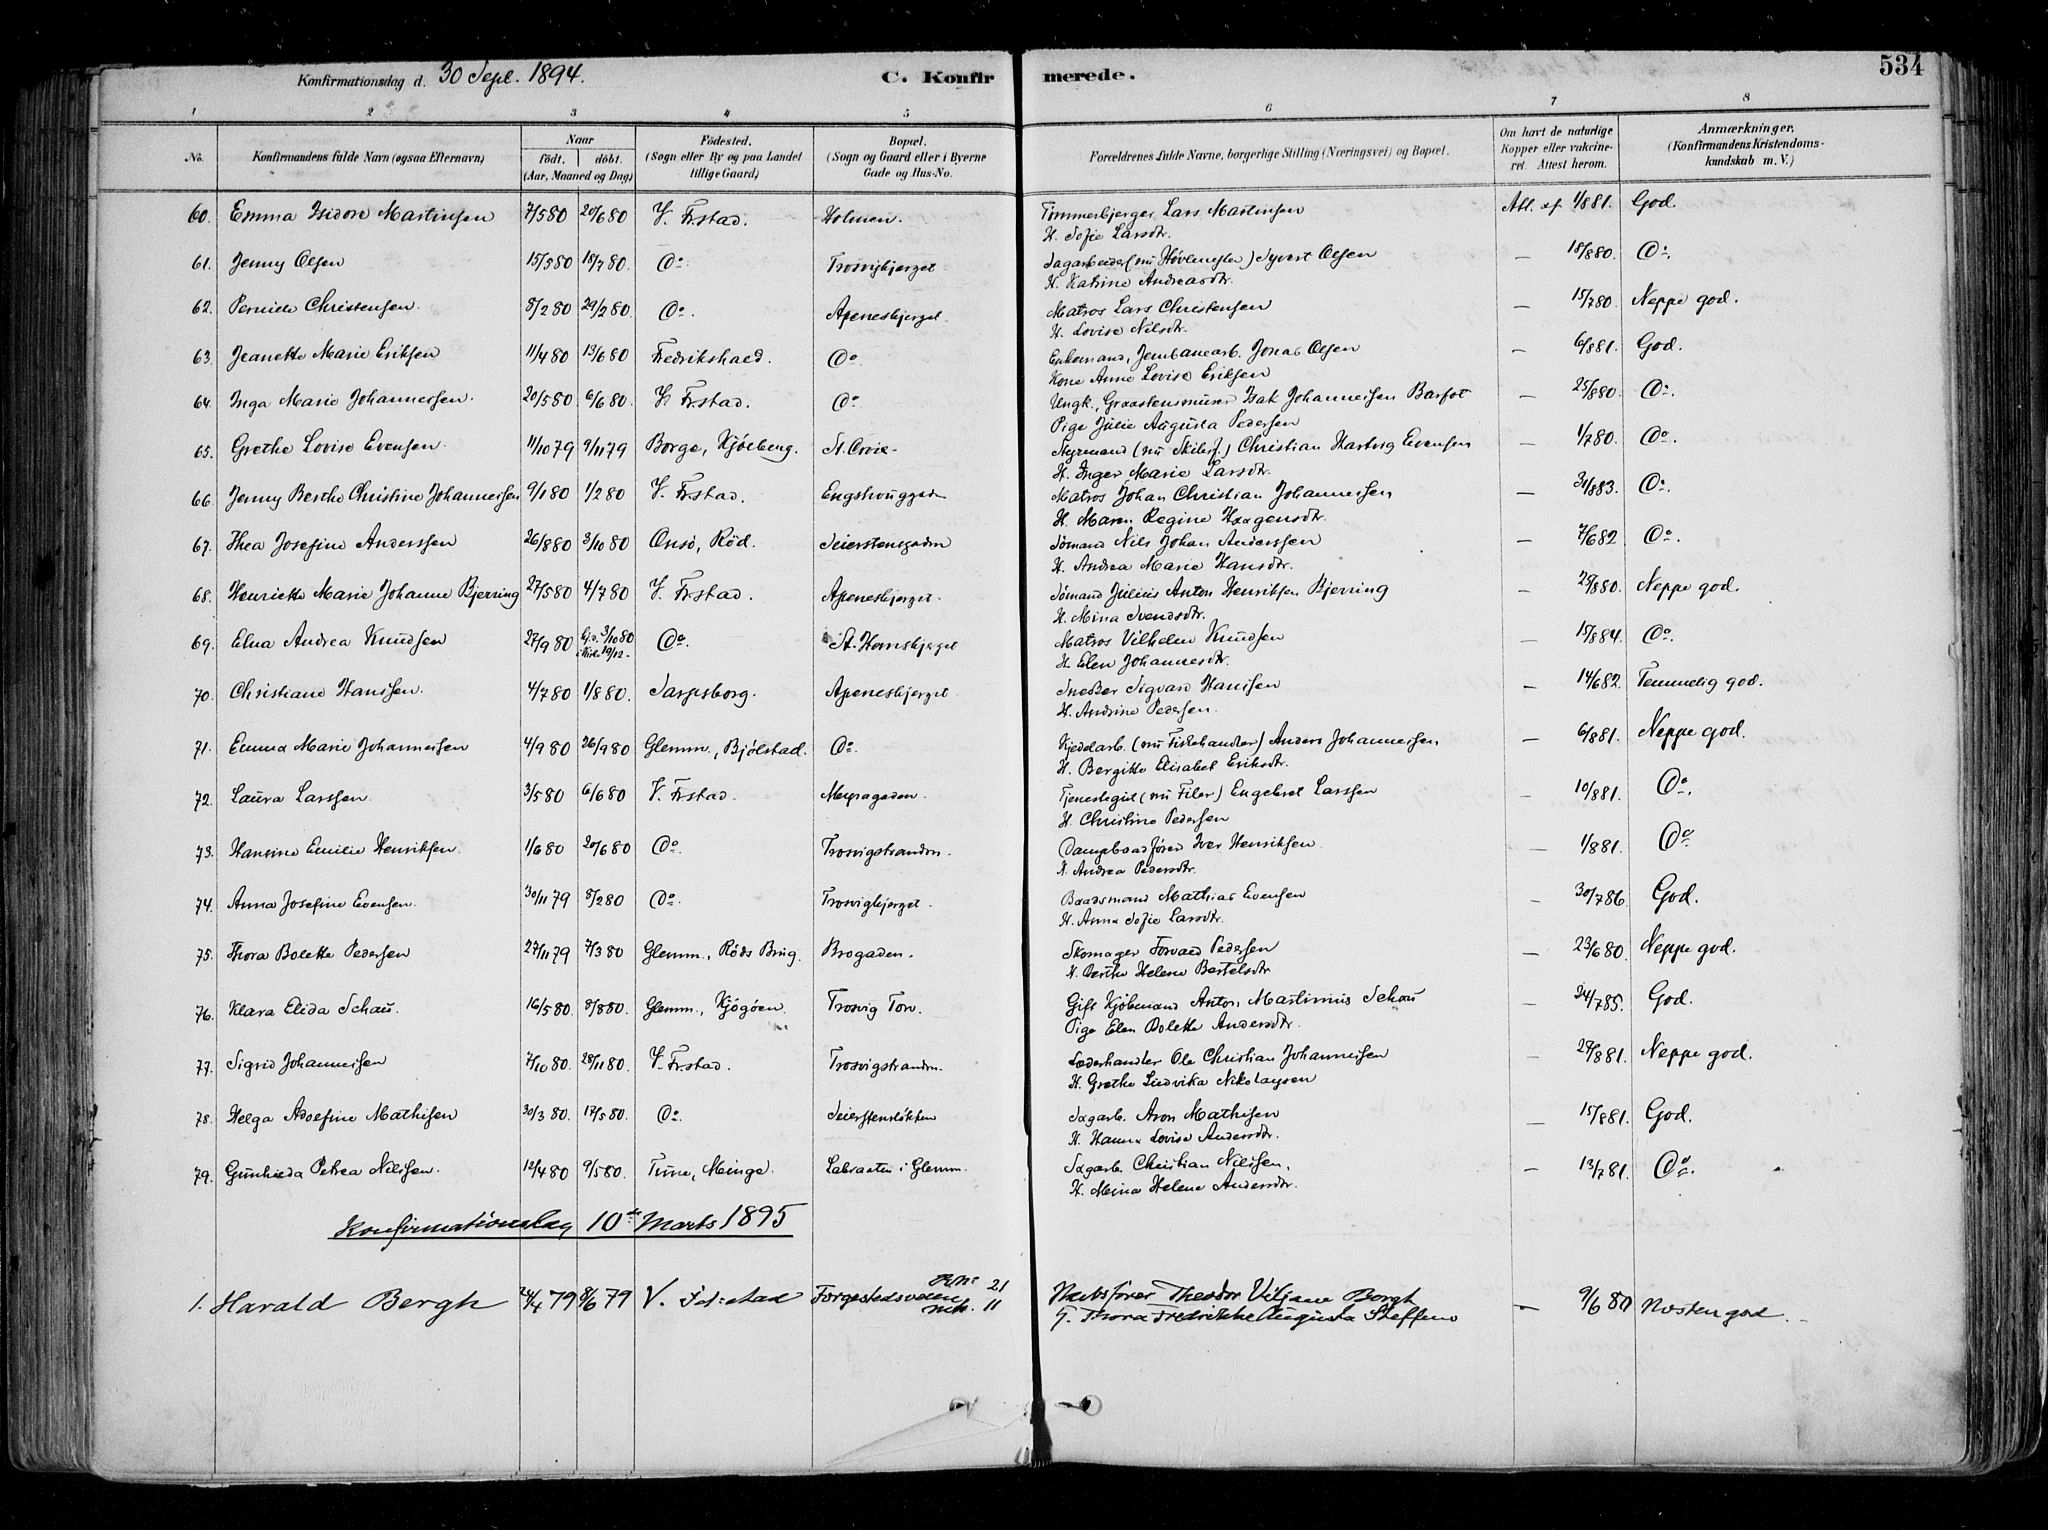 Konfirmationsdag d. 30 Sept. 1894.
C. Konfir merede.
534
1 2 3 4 5 6 7 8
No. Konfirmandens fulde Navn (ogsaa Efternavn) Naar født. døbt. (Aar, Maaned og Dag) Fødested. (Sogn eller By og paa Landet tillige Gaard) Bopæl. (Sogn og Gaard eller i Byerne Gade og Hus-No. Forældrenes fulde Navne, borgerlige Stilling (Næringsvei) og Bopæl. Om havt de naturlige Kopper eller vakcineret. Attest herom. Anmærkninger. (Konfirmandens Kristendomskundskab m. V.)
60. Emma Isidore Martinsen 7/5 80 20/6 80 V. Fr.stad. Holmen. Tømmerbjerger Lars Martinsen Att. af 1/8 81. God.
H. Sofie Larsdtr.
61. Jenny Olsen 15/5 80 18/7 80. Do. Trosvigbjerget. Sagarbeider (nu Høvlemester) Syvert Olsen — 18/8 80. Do.
H. Katrine Andreasdtr.
62. Pernille Christensen 8/2 80 29/2 80. Do. Apenesbjerget. Matros Lars Christensen — 15/7 80. Neppe god.
H. Lovise Nilsdtr.
63. Jeanette Marie Eriksen 11/4 80 13/6 80 Fredrikshald. Do Enkemand, Jernbanearb. Jonas Olsen — 6/8 81. God.
Kone Anne Lovise Eriksen
64. Inga Marie Johannessen. 20/5 80 6/6 80. V. Fr.stad. Do. Ungk., Graastensmurer Isak Johannessen Barfot — 25/6 80. Do.
Pige Julie Augusta Pedersen
65. Grethe Lovise Evensen. 11/10 79 9/11 79 Borge, Kjøleberg. St. Croix Styrmand (nu Skibsf.) Christian Hartvig Evensen — 1/7 80. Do.
H. Inger Marie Larsdtr.
66. Jenny Berthe Christine Johannessen 9/1 80 1/2 80 V. Fr.stad. Enghauggaden Matros Johan Christian Johannessen — 31/8 83. Do.
H. Maren Regine Haagensdtr.
67. Thea Josefine Anderssen 26/8 80 3/10 80 Onsø, Rød. Seierstensgaden Sømand Nils Johan Anderssen — 7/6 82. Do.
H. Andrea Marie Hansdtr.
68. Henriette Marie Johanne Bjerring 27/5 80 4/7 80 V. Fr.stad. Apenesbjerget. Sømand Julius Anton Henriksen Bjerring — 28/8 80. Neppe god.
H. Mina Svendsdtr.
69. Elna Andrea Knudsen 27/9 80 Hjd. 3/10 80 i Kirk. 19/12. Do. St. Hansbjerget Matros Vilhelm Knudsen — 15/8 84. Do.
H. Elen Johannesdtr.
70. Christiane Hanssen. 4/7 80 1/8 80. Sarpsborg. Apenesbjerget Snedker Sigvard Hanssen — 14/6 82. Temmelig god.
H. Andrine Pedersen.
71. Emma Marie Johannessen 4/9 80 26/9 80 Glemm., Bjølstad. Do. Kjedelarb. (nu Fiskehandler) Anders Johannessen — 6/8 81. Neppe god.
H. Bergitte Elisabet Eriksdtr.
72. Laura Larssen. 3/5 80 6/6 80 V. Fr.stad. Myragaden. Tjenestegut (nu Filer) Engebret Larssen — 10/8 81. Do.
H. Christine Pedersen
73. Hansine Emilie Henriksen. 1/6 80 20/6 80 Do. Trosvigstranden. Dampbaadfører Iver Henriksen. — 1/8 81. Do
H. Andrea Pedersdtr.
74. Anna Josefine Evensen. 30/11 79 8/2 80 Do. Trosvigbjerget. Baadsmand Mathias Evensen — 30/7 86. God.
H. Anna Sofie Larsdtr.
75. Thora Bolette Pedersen 27/11 79 7/3 80 Glemm., Røds Brug. Brogaden. Skomager Torvald Pedersen — 23/6 80. Neppe god.
H. Berthe Helene Bertelsdtr
76. Klara Elida Schau. 16/5 80. 8/8 80. Glemm., Kjøgøen. Trosvig Torv. Gift Kjøbmand Anton Martinius Schau — 24/7 85. God.
Pige Elen Bolette Andersdtr.
77. Sigrid Johannessen 7/10 80. 28/11 80. V. Fr.stad. Trosvigstranden. Læderhandler Ole Christian Johannessen — 29/8 81. Neppe god.
H. Grethe Ludvika Nikolaysen
78. Helga Adolfine Mathisen 30/3 80. 17/5 80. Do. Seierstensløkken Sagarb. Aron Mathisen — 15/8 81. God.
H. Hanna Lovise Andersdtr.
79. Gunhilda Petrea Nilssen. 12/4 80 9/5 80. Tune, Minge. Labraaten i Glemm. Sagarb. Christian Nilssen. — 13/7 81. Do.
H. Mina Helene Andersdtr.
Konfirmationsdag 10de Marts 1895
1. Harald Bergh 24/4 79 8/6 79 V. Fr:stad Færgestedsveien 21 Mtr. 11 Theodor Viljam Bergh — 9/6 80 Næsten god.
G. Thora Fredrikke Augusta Steffens